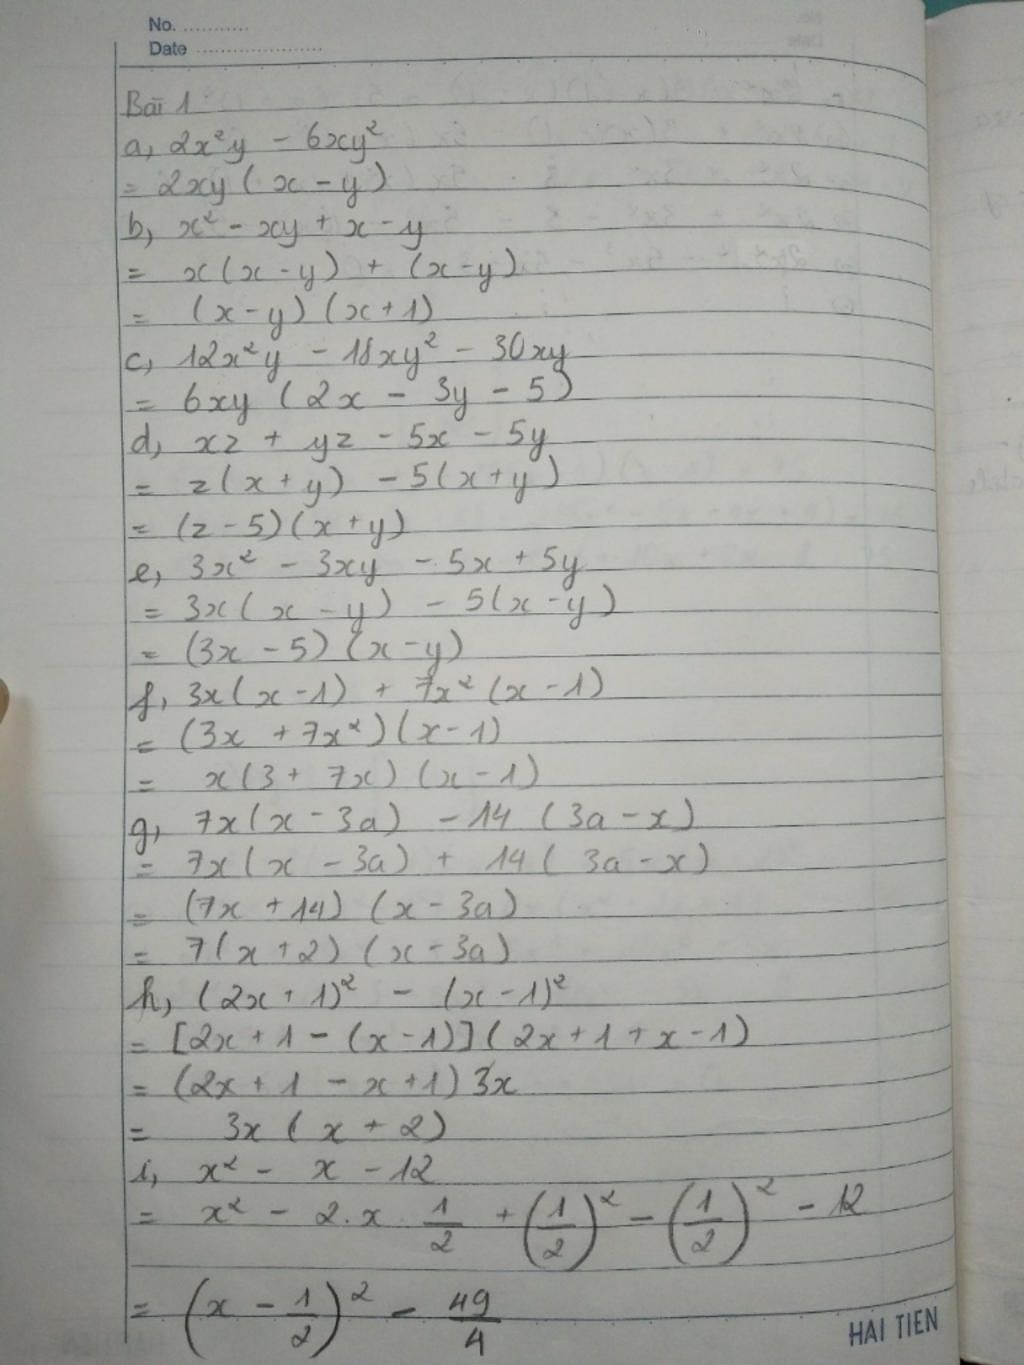 No. ...........
Date .....................
Bài 1
a, 2x²y - 6xy²
= 2xy ( x - y )
b, x² - xy + x - y
= x ( x - y ) + ( x - y )
= ( x - y ) ( x + 1 )
c, 12x²y - 18xy² - 30xy
= 6xy ( 2x - 3y - 5 )
d, xz + yz - 5x - 5y
= z ( x + y ) - 5 ( x + y )
= ( z - 5 ) ( x + y )
e, 3x² - 3xy - 5x + 5y
= 3x ( x - y ) - 5 ( x - y )
= ( 3x - 5 ) ( x - y )
f, 3x ( x - 1 ) + 7x² ( x - 1 )
= ( 3x + 7x² ) ( x - 1 )
= x ( 3 + 7x ) ( x - 1 )
g, 7x ( x - 3a ) - 14 ( 3a - x )
= 7x ( x - 3a ) + 14 ( 3a - x )
= ( 7x + 14 ) ( x - 3a )
= 7 ( x + 2 ) ( x - 3a )
h, ( 2x + 1 )² - ( x - 1 )²
= [ 2x + 1 - ( x - 1 ) ] ( 2x + 1 + x - 1 )
= ( 2x + 1 - x + 1 ) 3x
= 3x ( x + 2 )
i, x² - x - 12
= x² - 2 . x . 1/2 + (1/2)² - (1/2)² - 12
= ( x - 1/2 )² - 49/4
HAI TIEN